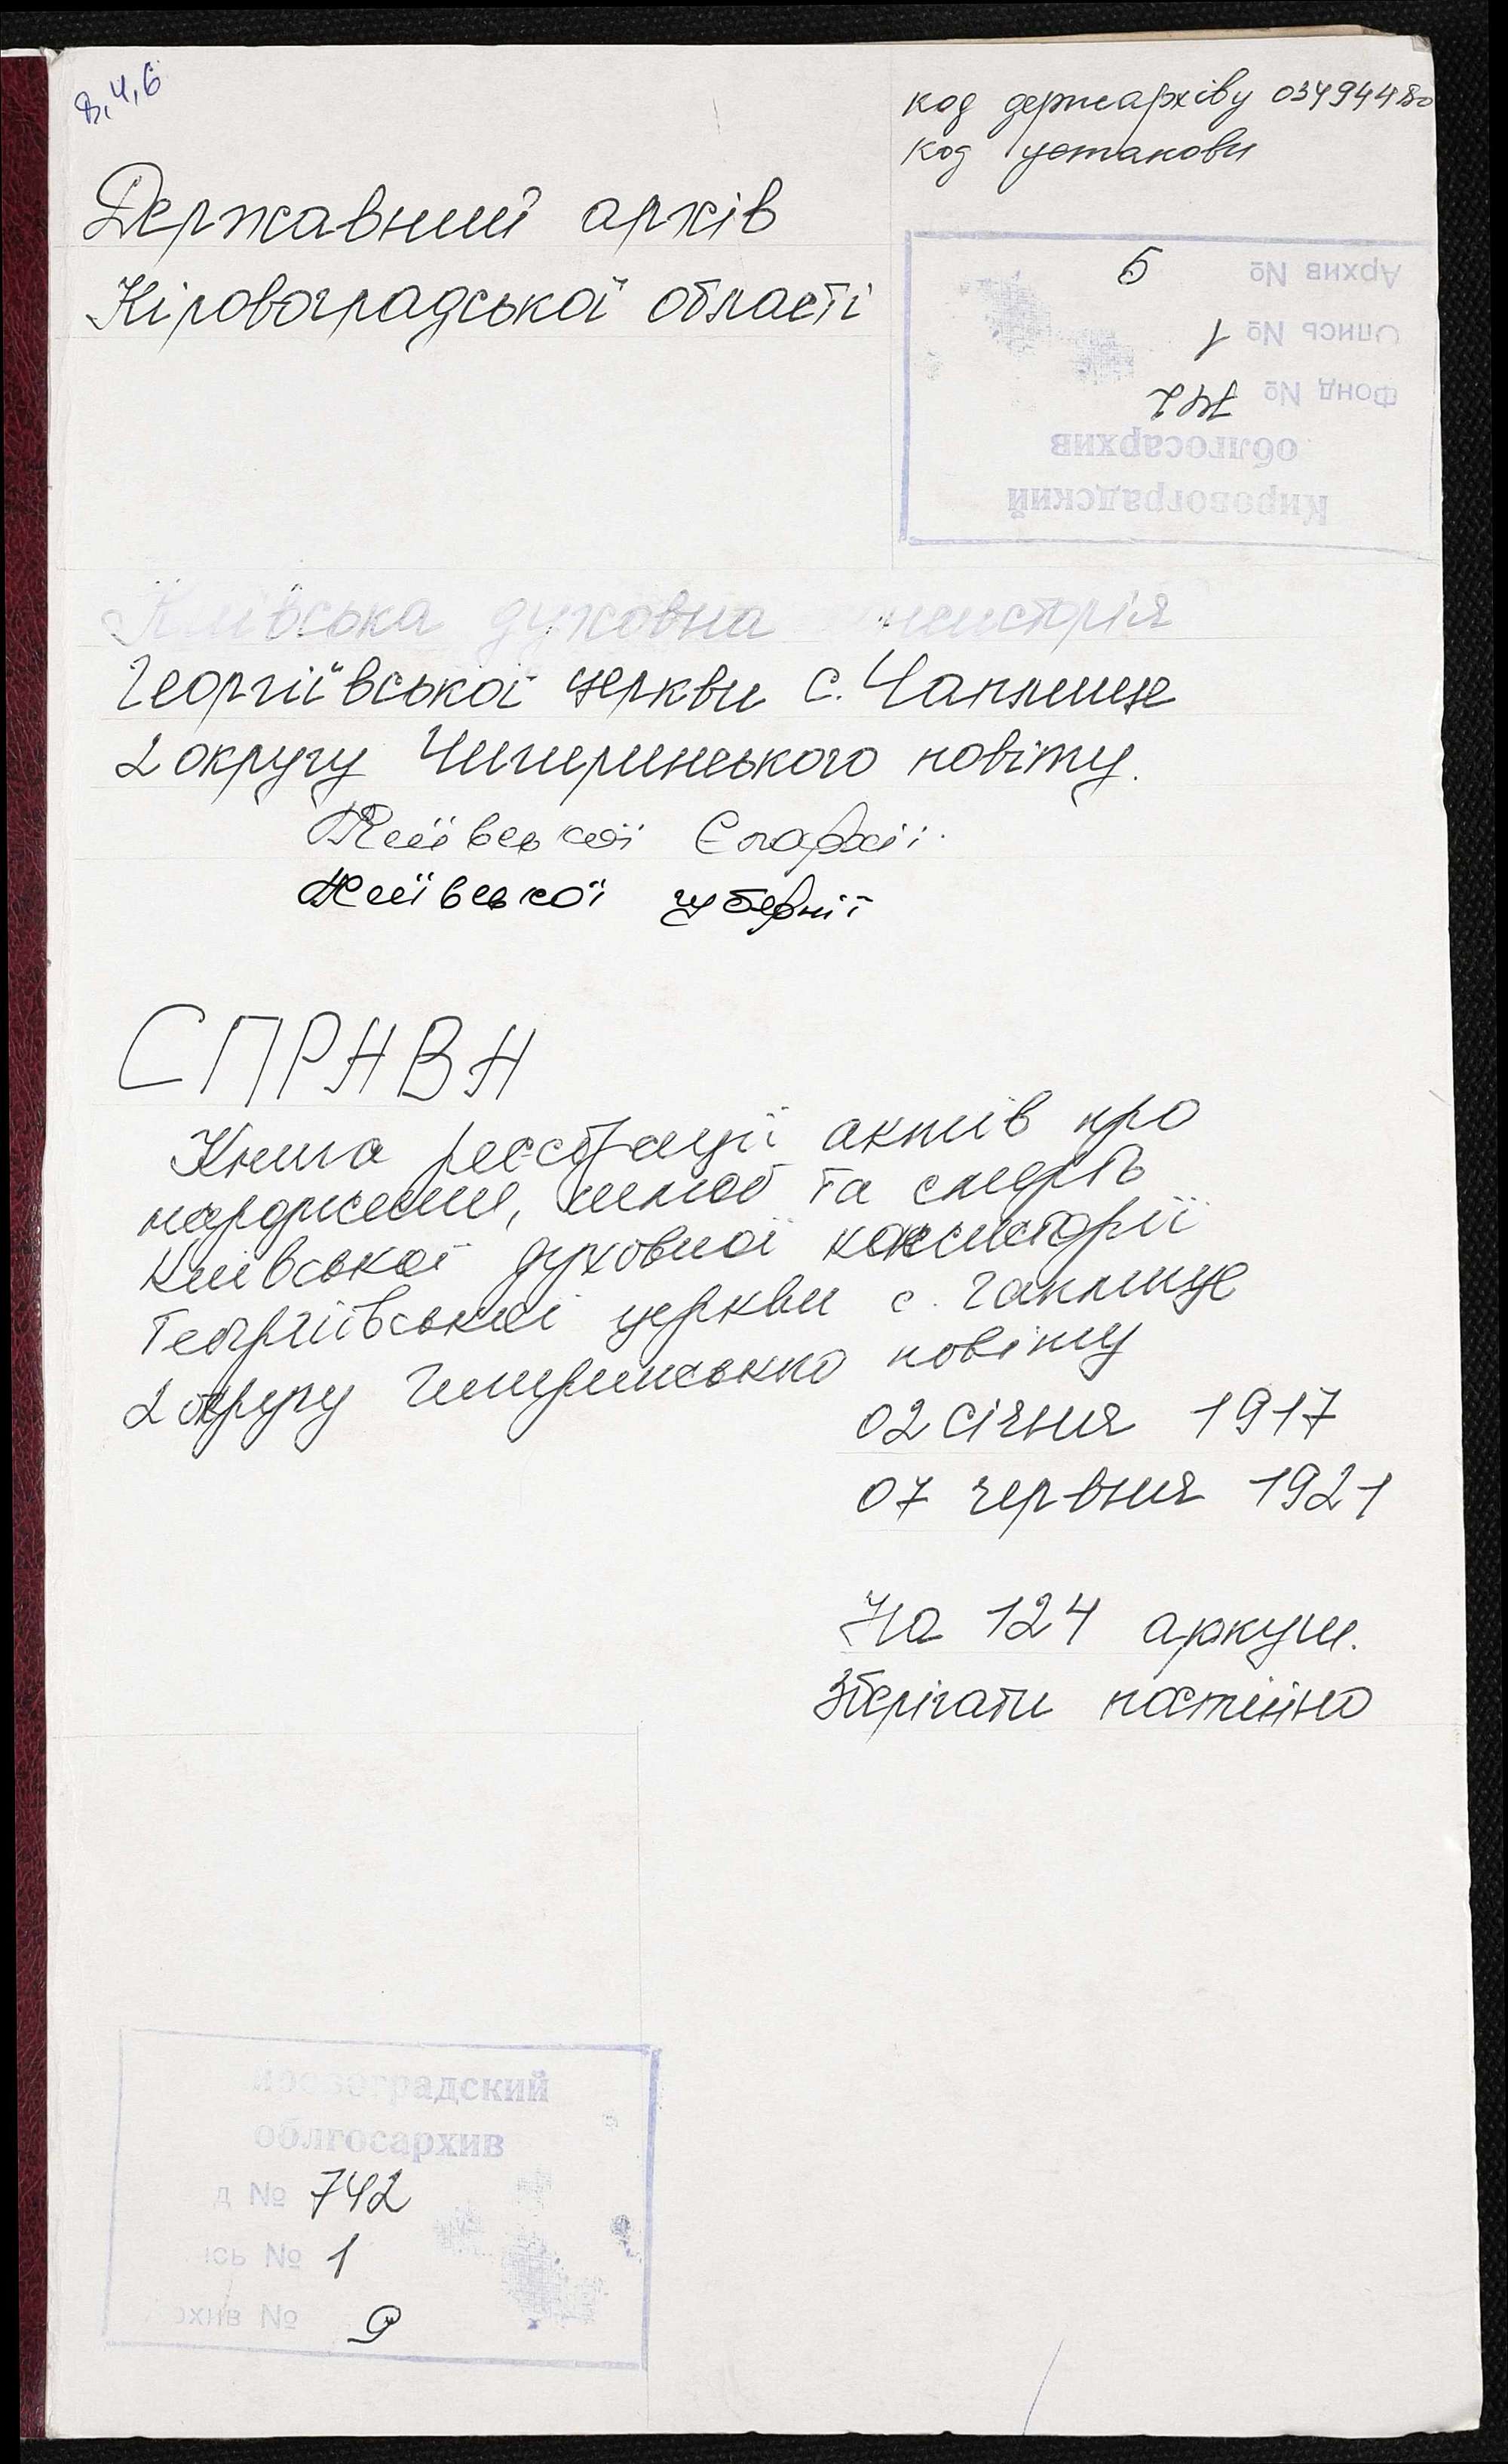 8,4,6
код держархіву 03494480
код установи
Державний архів
Кіровоградської області
Кировоградский
облгосархив
Фонд № 742
Опись № 1
Архив № 9
Київська духовна консисторія
Георгіївської церкви с. Чаплище
2 округу Чигиринського повіту.
Київської Єпархії.
Київської губернії
СПРАВА
Книга реєстрації актів про
народження, шлюб та смерть
Київської духовної консисторії
Георгіївської церкви с. Чаплище
2 округу Чигиринсько повіту
02 січня 1917
07 червня 1921
На 124 аркуш.
Зберігати постійно
ировоградский
облгосархив
д № 742
ись № 1
рхив № 9